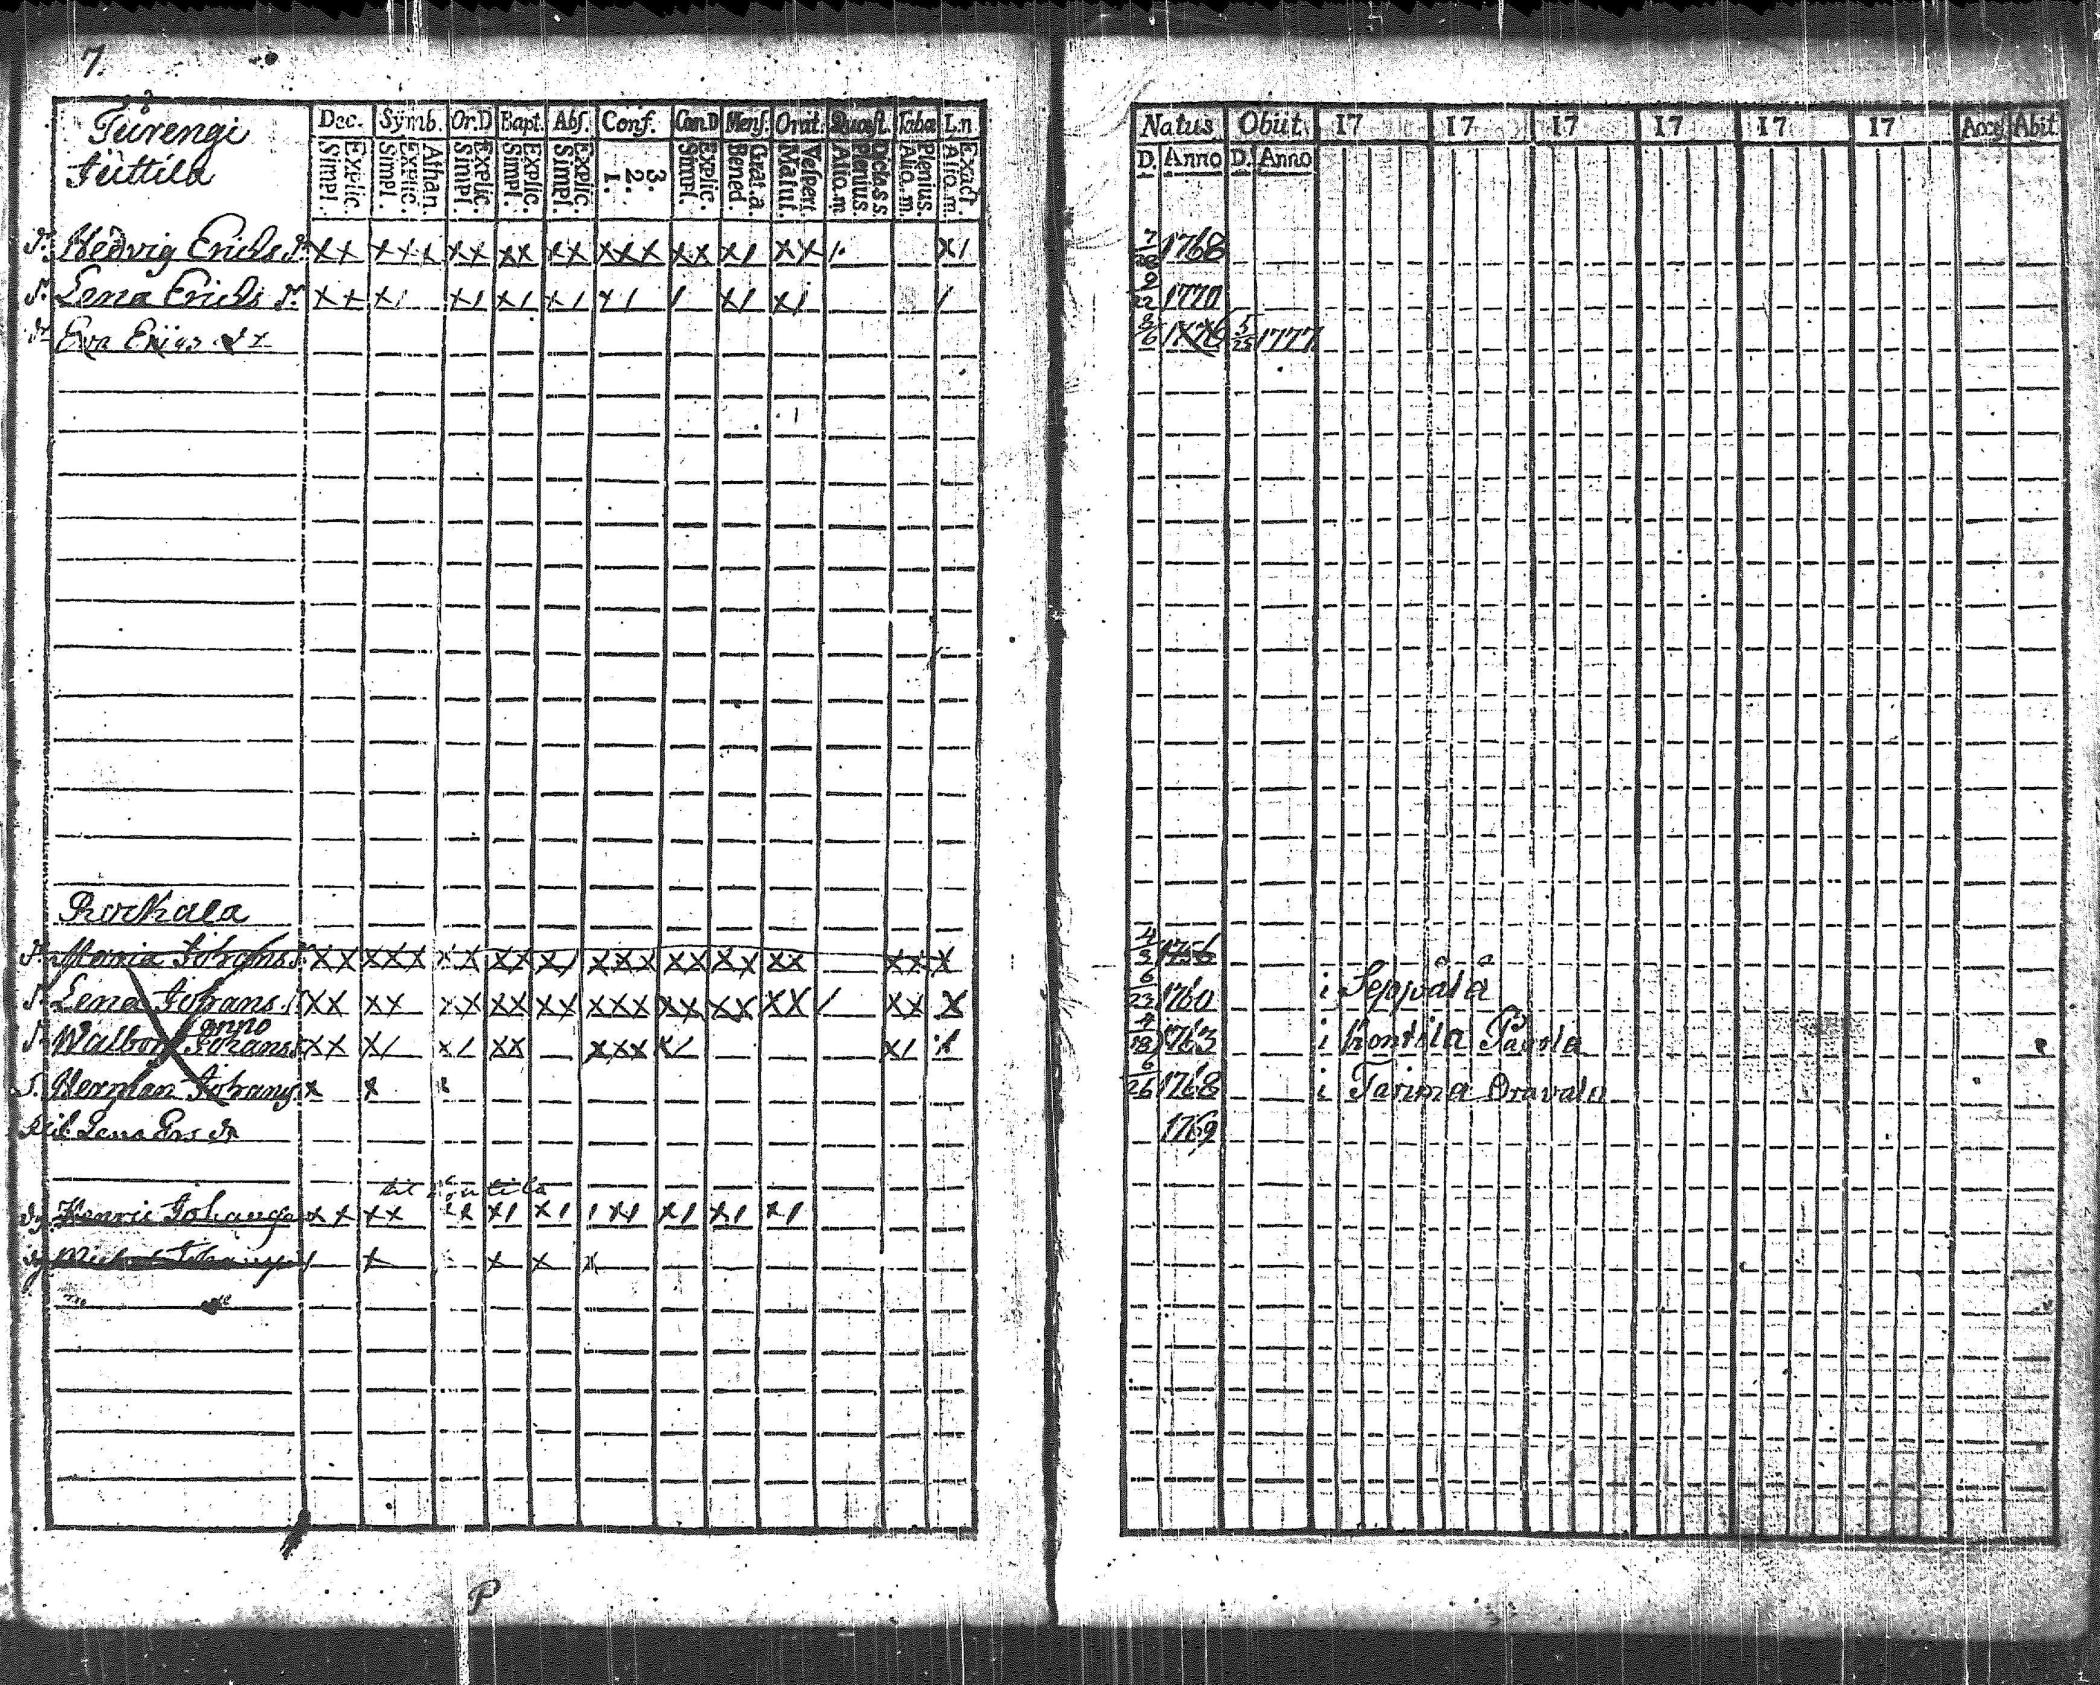 7.
Turengi
Juttila
Dec. Symb. Or.D Bapt. Abs. Conf. Can.D Mens. Orat. Quæst. Tabæ L.n
Explic. Simpl. Athan. Explic. Simpl. Explic. Simpl. Explic. Simpl. Explic. Simpl. 3. 2. 1. Explic. Simpl. Grat.a. Bened. Vesperi. Matut. Dicta s.s. Plenius. Aliq.m Plenius. Aliq.m. Exact. Aliq.m.
Natus Obiit 17 17 17 17 17 17 Acces Abit
D. Anno D. Anno
Dr. Hedvig Erichs Dr. xx xxx xx xx xx xxx xx x/ xx /. x/ 7/28 1768
Dr. Lena Erichs Dr. xx x/ x/ x/ x/ x/ / x/ x/ / 9/22 1770
Dr Eva Erics Dr 8/6 1776 5/25 1777
Rockala
Dr. Maria Johans Dr. xx xxx xx xx x/ xxx xx xx xx xx x 4/3 1756
Dr. Lena Johans. Dr xx xx xx xx xx xxx xx xx xx / xx x 6/23 1760 i Seppälä
anno
Dr. Walborg Johans Dr xx x/ x/ xx xxx x/ x/ 4/18 1763 i Kontila Pavola
S. Herman Johans. x x x 6/26 1768 i Tarima Oravala
Lena Ers Dr 1769
Henric Johans xx xx xx x/ x/ /x/ x/ x/ x/
Michel Johans / x x x x
P